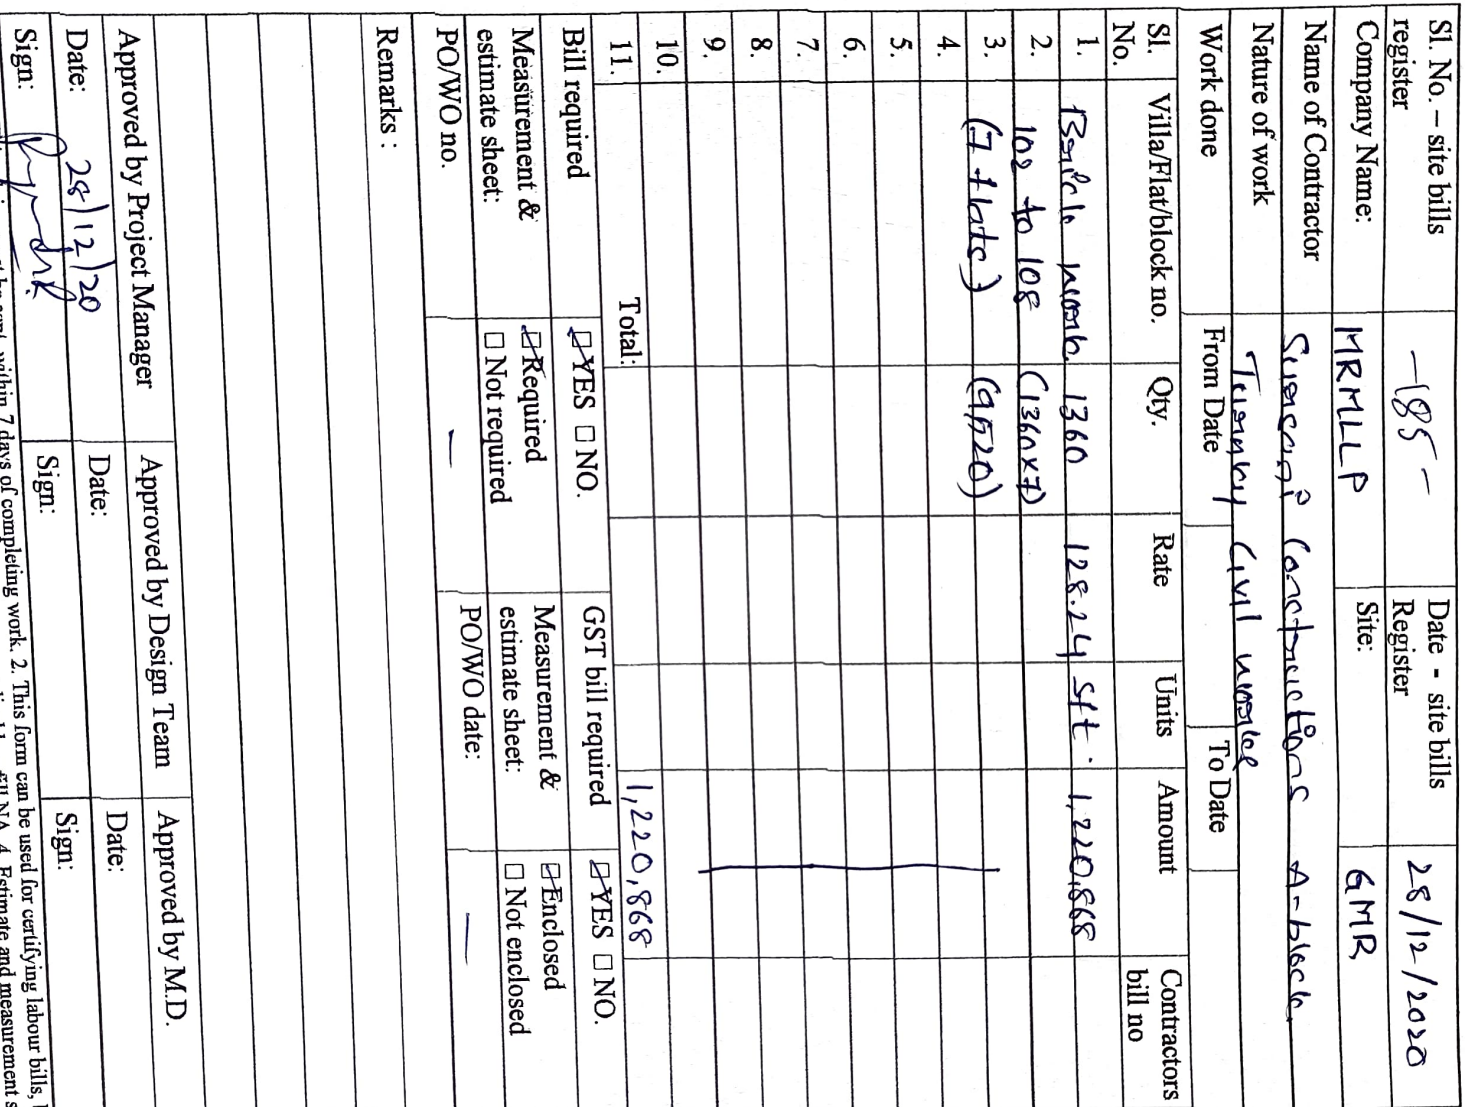 Sl. No. – site bills register -185- Date - site bills Register 28/12/2020
Company Name: MRMLLP Site: GMR
Name of Contractor Constructions A-block
Nature of work Turnkey Civil works
Work done From Date To Date
Sl. No. Villa/Flat/block no. Qty. Rate Units Amount Contractors bill no
1. Brick work 1360 128.24 sft. 1,220,868
2. 102 to 108 (1360x7)
3. (7 flats) (9,520)
4.
5.
6.
7.
8.
9.
10.
11. Total: 1,220,868
Bill required ☑YES ☐ NO. GST bill required ☑YES ☐ NO.
Measurement & estimate sheet: ☑Required ☐ Not required Measurement & estimate sheet: ☑Enclosed ☐ Not enclosed
PO/WO no. — PO/WO date: —
Remarks :
Approved by Project Manager Approved by Design Team Approved by M.D.
Date: 28/12/20 Date: Date:
Sign: Sign: Sign:
within 7 days of completing work. 2. This form can be used for certifying labour bills,
fill NA. 4. Estimate and measurement